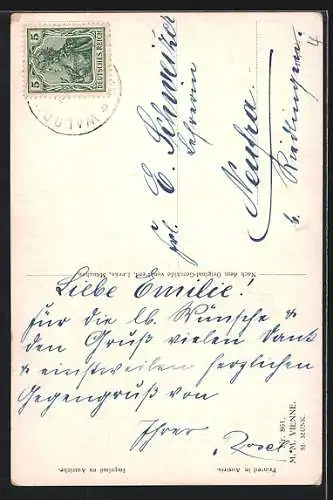 5 DEUTSCHES REICH 5
WALD
4
Frl. E. Schweitzer
Lehrerin
Neufra
b. Riedlingen.
Nach dem Original-Gemälde von Ferd. Leeke, München.
Liebe Emilie!
Für die lb. Wünsche &
den Gruß vielen Dank
& einstweilen herzlichen
Gegengruß von
Ihrer
Rosel
Nr. 861.
M. M. VIENNE.
M. MUNK.
Imprimé en Autriche.
Printed in Austria.